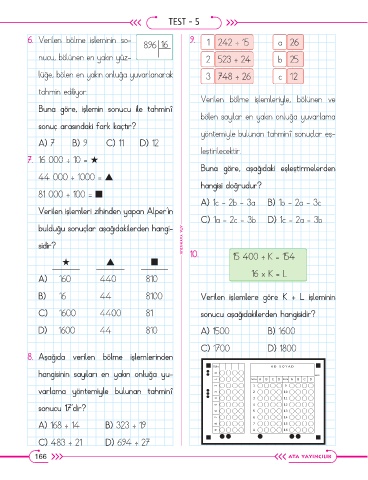 TEST - 5
6. Verilen bölme işleminin so-
nucu, bölünen en yakın yüz-
lüğe, bölen en yakın onluğa yuvarlanarak
tahmin ediliyor.
896 16
Buna göre, işlemin sonucu ile tahminî
sonuç arasındaki fark kaçtır?
A) 7 B) 9 C) 11 D) 12
7. 16 000 ÷ 10 = ★
44 000 ÷ 1000 = ▲
81 000 ÷ 100 = ■
Verilen işlemleri zihinden yapan Alper'in
bulduğu sonuçlar aşağıdakilerden hangi-
sidir?
★ ▲ ■
A) 160 440 810
B) 16 44 8100
C) 1600 4400 81
D) 1600 44 810
8. Aşağıda verilen bölme işlemlerinden
hangisinin sayıları en yakın onluğa yu-
varlama yöntemiyle bulunan tahminî
sonucu 17'dir?
A) 168 ÷ 14 B) 323 ÷ 19
C) 483 ÷ 21 D) 694 ÷ 27
9. 1 242 ÷ 15 a 26
2 523 ÷ 24 b 25
3 748 ÷ 26 c 12
Verilen bölme işlemleriyle, bölünen ve
bölen sayılar en yakın onluğa yuvarlama
yöntemiyle bulunan tahminî sonuçlar eş-
leştirilecektir.
Buna göre, aşağıdaki eşleştirmelerden
hangisi doğrudur?
A) 1c - 2b - 3a B) 1b - 2a - 3c
C) 1a - 2c - 3b D) 1c - 2a - 3b
10. 15 400 ÷ K = 154
16 x K = L
Verilen işlemlere göre K + L işleminin
sonucu aşağıdakilerden hangisidir?
A) 1500 B) 1600
C) 1700 D) 1800
ADI SOYADI
166
ATA YAYINCILIK